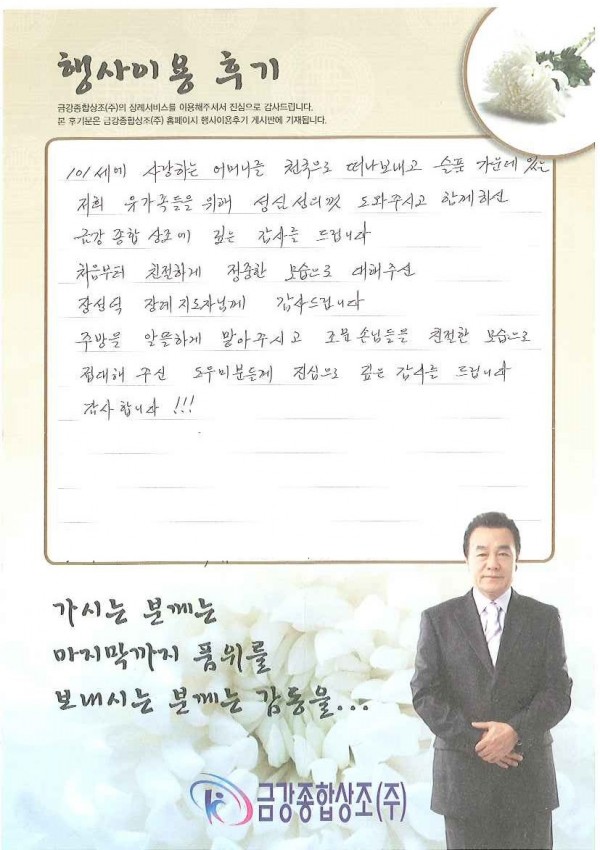 행사이용 후기
금강종합상조(주)의 장례서비스를 이용해주셔서 진심으로 감사드립니다.
본 후기문은 금강종합상조(주) 홈페이시 행사이용후기 게시판에 기재됩니다.
101세에 사랑하는 어머니를 천국으로 떠나보내고 슬픔 가운데 있는
저희 유가족들을 위해 성심성의껏 도와주시고 함께하신
금강 종합 상조에 깊은 감사를 드립니다
처음부터 친절하게 정중한 모습으로 대해주신
장례지도자님께 감사드립니다
주방을 알뜰하게 맡아주시고 조문 손님들을 친절한 모습으로
접대해 주신 도우미분들께 진심으로 깊은 감사를 드립니다
감사합니다 !!!
가시는 분께는
마지막까지 품위를
보내시는 분께는 감동을...
금강종합상조(주)